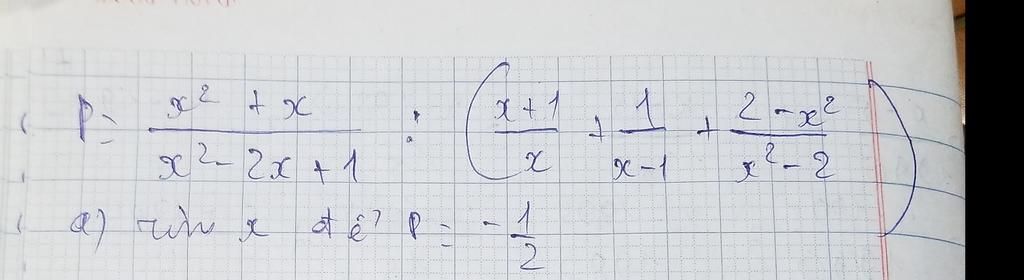 P = \frac{x^2 + x}{x^2 - 2x + 1} : \left( \frac{x+1}{x} + \frac{1}{x-1} + \frac{2-x^2}{x^2-2} \right)
a) tìm x để P = -\frac{1}{2}